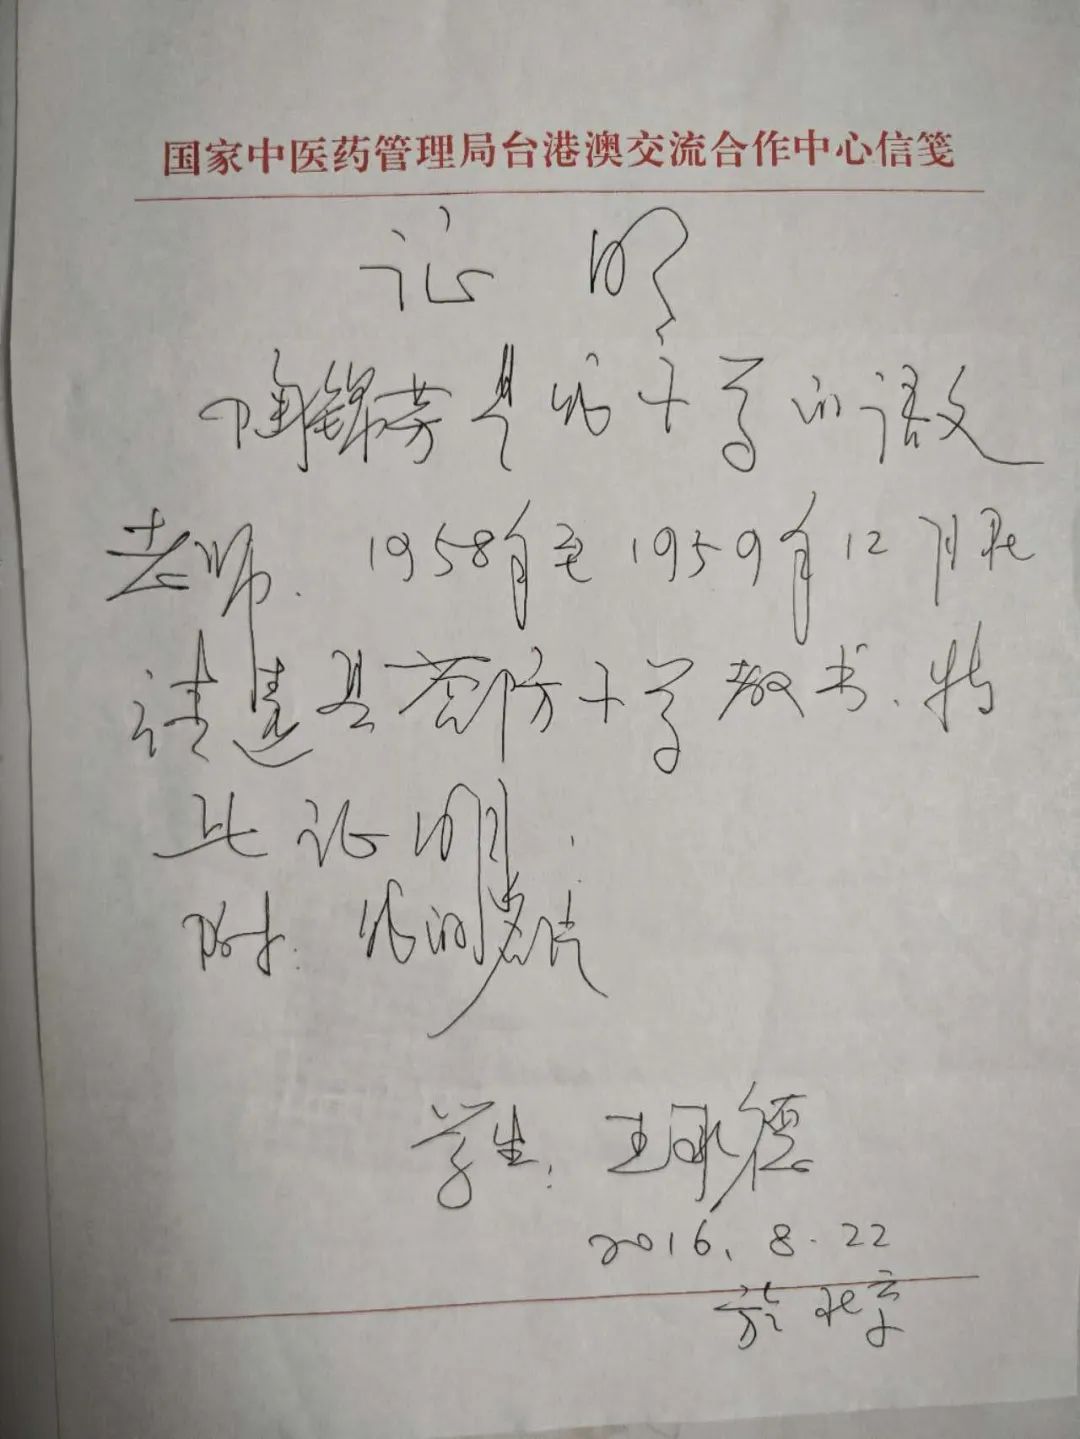 国家中医药管理局台港澳交流合作中心信笺
证明
陶锦芳是我小学的语文
老师. 1958年至1959年12月在
县茶防小学教书、特
此证明.
附: 我的
学生: 王承德
2016. 8. 22
于北京